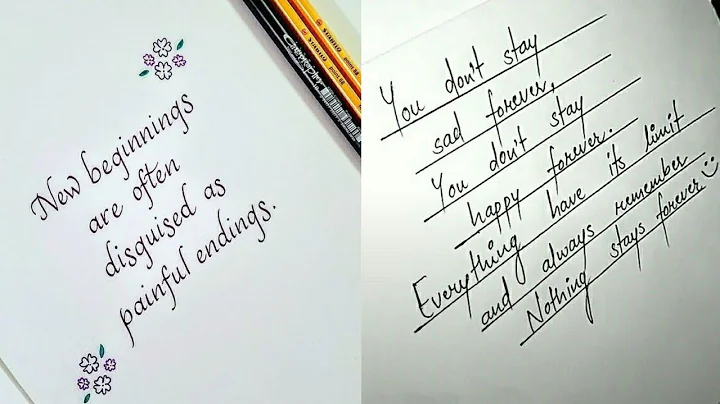 New beginnings
are often
disguised as
painful endings.
STABILO point 88
STABILO point 88
You don't stay
sad forever,
You don't stay
happy forever.
Everything have its limit
and always remember
Nothing stays forever